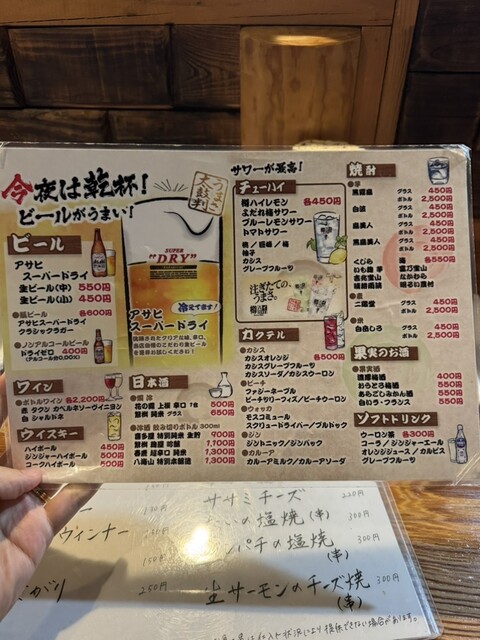 今夜は乾杯!
ビールがうまい!
うまさ
太鼓判
ビール
アサヒ
スーパードライ
生ビール(中) 550円
生ビール(小) 450円
●瓶ビール 各600円
アサヒスーパードライ
クラシックラガー
●ノンアルコールビール
ドライゼロ 400円
(アルコール分0.00%)
SUPER
"DRY"
冷えてます!
アサヒ
スーパードライ
洗練されたクリアな味、辛口。
ワイン
●ボトルワイン 各2,200円
赤 タクン カベルネソーヴィニヨン
白 シャルドネ
ウイスキー
ハイボール 450円
ジンジャーハイボール 500円
コークハイボール 500円
日本酒
花の舞 上撰 辛口 1合 500円
純米 グラス 650円
300ml
900円
1,100円
1,300円
八海山 特別本醸造 1,300円
サワーが最高!
チューハイ
各450円
樽ハイレモン
よだれ梅サワー
ブルーレモンサワー
トマトサワー
カシス
グレープフルーツ
注ぎたての、
うまさ。
カクテル
●カシス 各500円
カシスオレンジ
カシスグレープフルーツ
カシスソーダ/カシスウーロン
●ピーチ
ファジーネーブル
ピーチサワー/ピーチウーロン
●ウォッカ
モスコミュール
スクリュードライバー/ブルドック
●ジン
ジントニック/ジンバック
●カルーア
カルーアミルク/カルーアソーダ
焼酎
●芋
黒霧島 グラス 450円
ボトル 2,500円
白波 グラス 450円
ボトル 2,500円
島美人 グラス 450円
ボトル 2,500円
黒島美人 グラス 450円
ボトル 2,500円
各550円
くじら
いも麹 芋 富乃宝山
吉兆宝山 なかむら
明るい農村
●麦
二階堂 グラス 450円
ボトル 2,500円
●米
白岳しろ グラス 450円
ボトル 2,500円
果実のお酒
●果実酒
550円
おらとろ梅酒 550円
あらごしみかん酒 550円
白いラ・フランス 550円
ソフトドリンク
ウーロン茶 各300円
コーラ / ジンジャーエール
オレンジジュース / カルピス
グレープフルーツ
ササミチーズ 220円
の塩焼(串) 300円
ウィンナー
パチの塩焼 300円
(串)
がり 250円
生サーモンのチーズ焼 300円
(串)
入れ状況により提供できない場合があります。